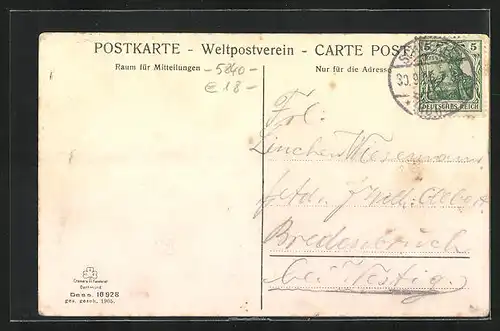 POSTKARTE - Weltpostverein - CARTE POST
Raum für Mitteilungen
Nur für die Adresse
5840-
€ 18-
5 5
DEUTSCHES REICH
Frl.
Linchen Wiesemann
Bredenbruch
bei Westig.
Dortmund
Dess. 16928
ges. gesch. 1905.